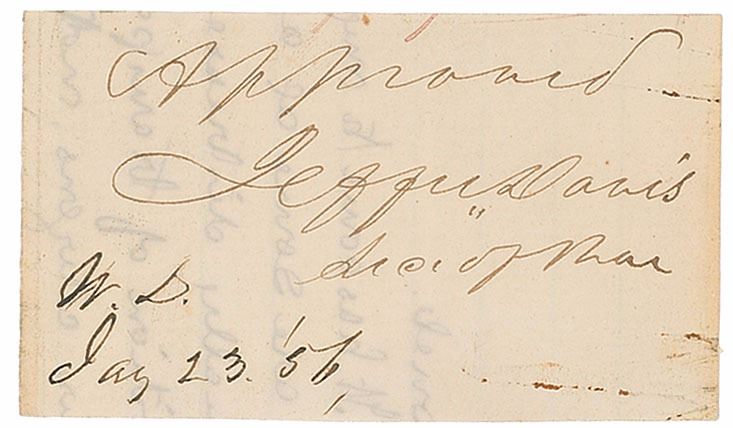 Approved
Jeffn Davis
Secy of War
W. D.
Jany 23. '56,